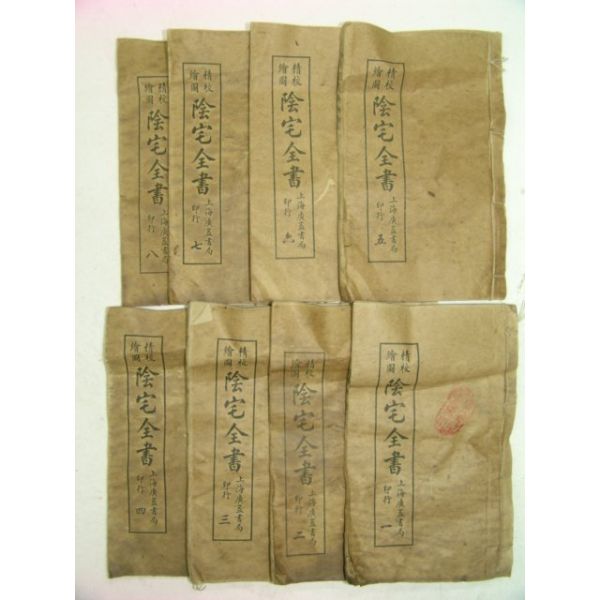 精校
繪圖
陰宅全書
上海廣益書局
印行
八
精校
繪圖
陰宅全書
上海廣益書局
印行
七
精校
繪圖
陰宅全書
上海廣益書局
印行
六
精校
繪圖
陰宅全書
上海廣益書局
印行
五
精校
繪圖
陰宅全書
上海廣益書局
印行
四
精校
繪圖
陰宅全書
上海廣益書局
印行
三
精校
繪圖
陰宅全書
上海廣益書局
印行
二
精校
繪圖
陰宅全書
上海廣益書局
印行
一